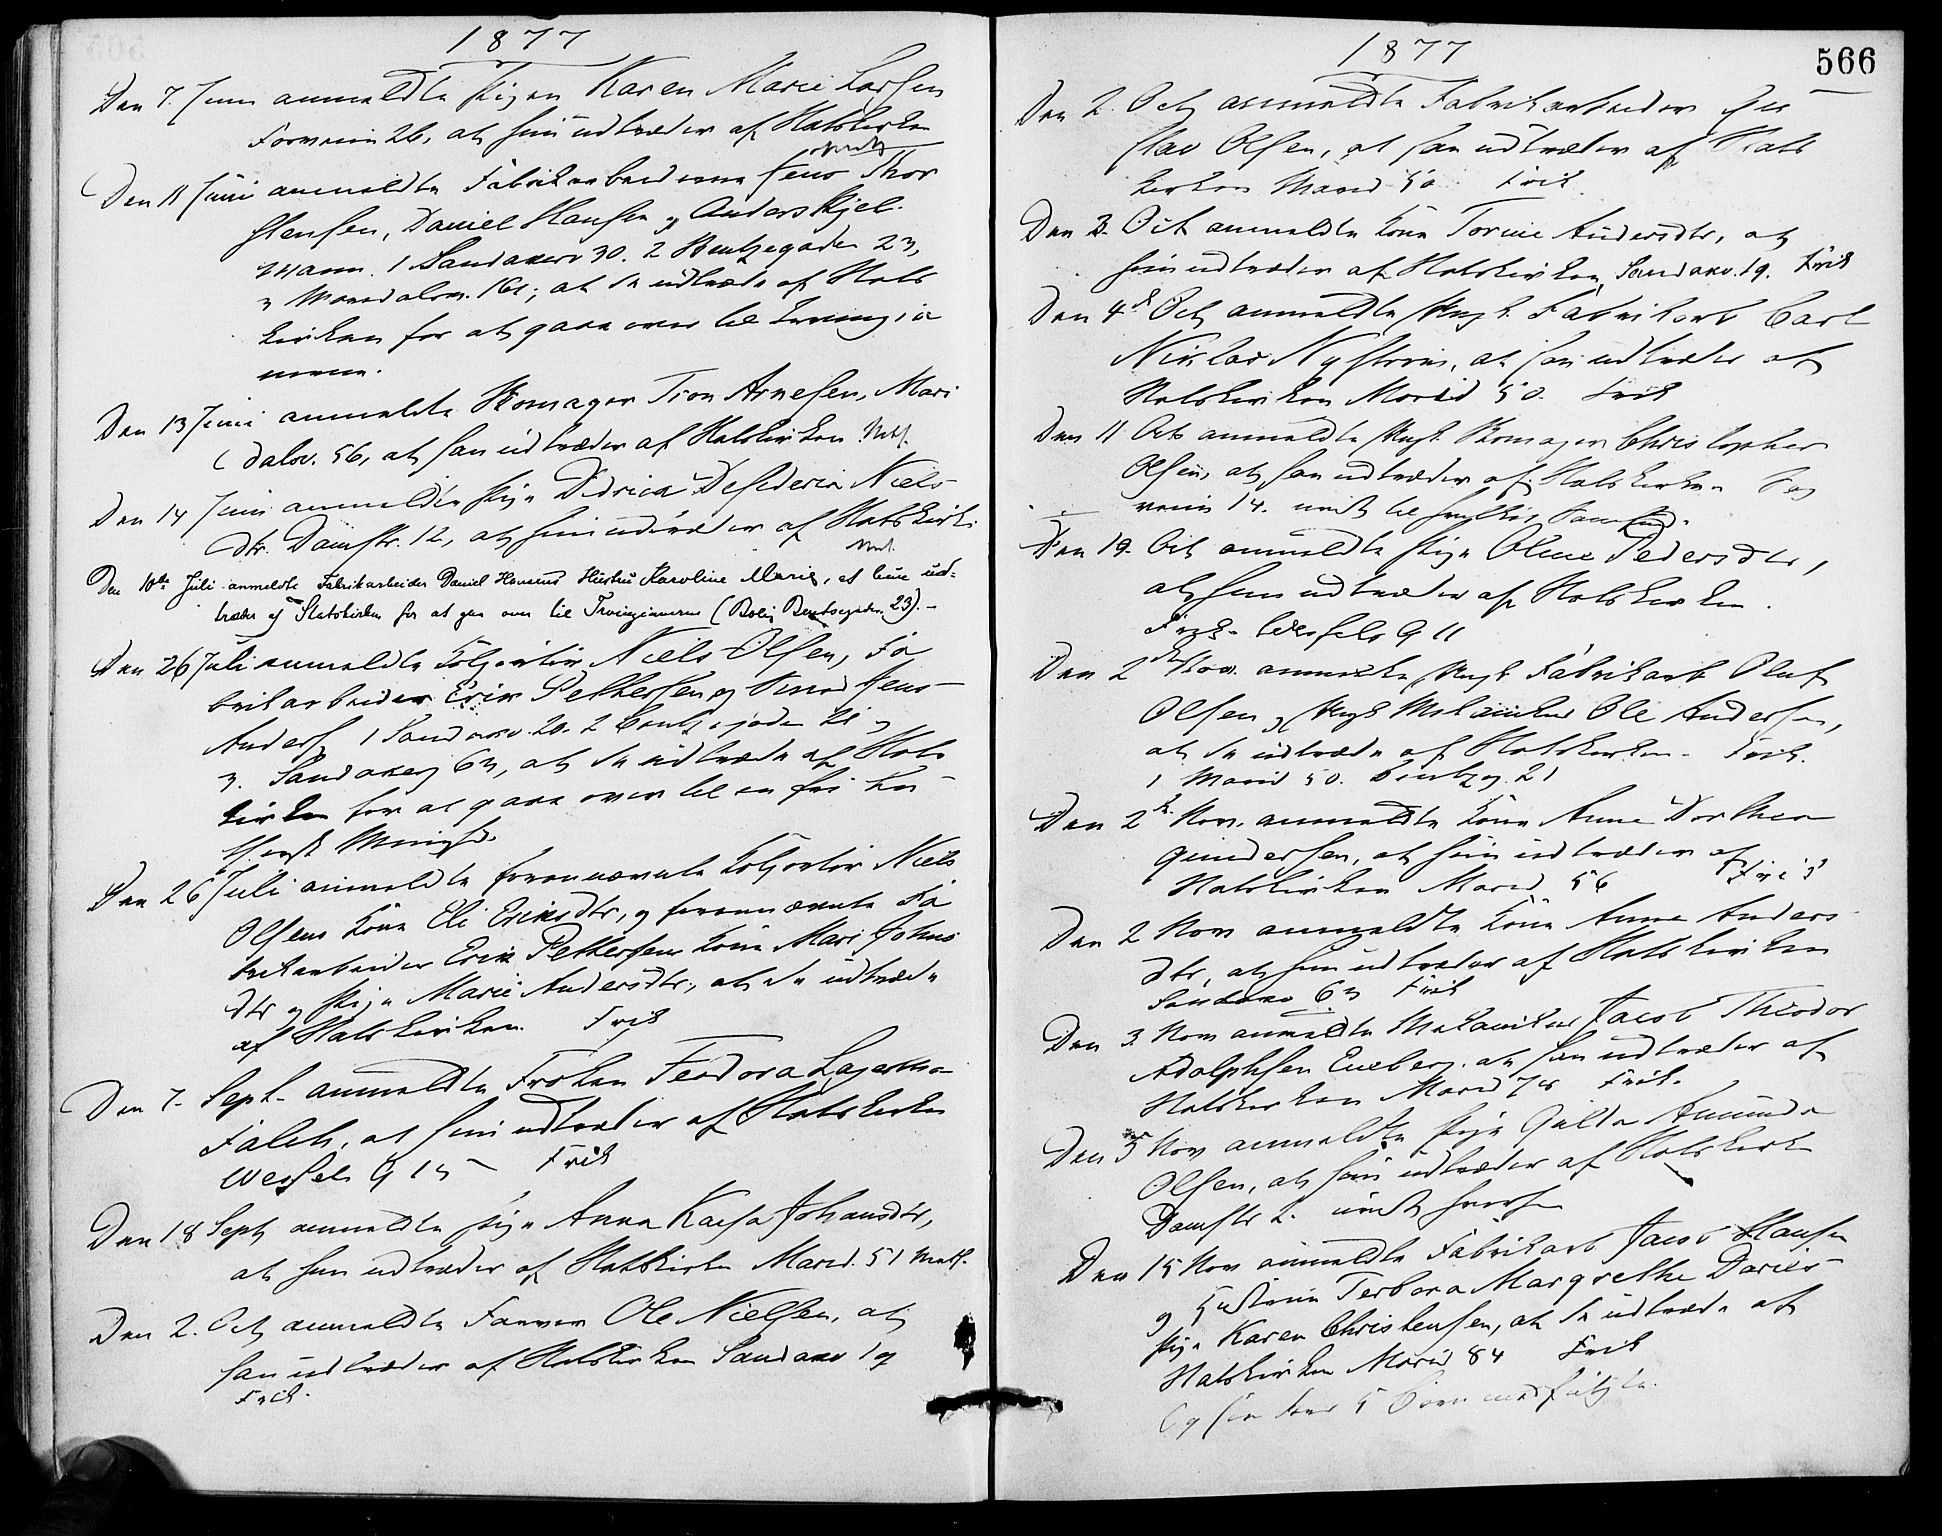 1877
Den 7. Juni anmeldte Pigen Karen Marie Larsen
Forveien 26, at hun udtræder af Statskirken
Den 11 Juni anmeldte Fabrikarbeiderne Jens Thor
stensen, Daniel Hansen og Anders Kjel.
mann. 1 Sandakerv 30. 2 Bentzegaden 23,
3 Maridalsv. 161; at de udtræde af Stats
kirken for at gaa over til Irvingia
nerne.
Den 13 Juni anmeldte Skomager Tron Arnesen, Mari
dalsv. 56, at han udtræder af Statskirken Meth.
Den 14 Juni anmeldte Pige Didrica Desideria Niels
dtr. Damstr. 12, at hun udtræder af Statskirk.
Met.
Den 10de Juli anmeldte Fabrikarbeider Daniel Hansens Hustru Karoline Marie, at hun ud-
træder af Statskirken for at gaa over til Irvingianerne (Bolig Bentsegaden 23). -
Den 26 Juli anmeldte Kolportør Niels Olsen, Fa
brikarbeider Erik Pettersen og Smed Jens
Anders 1 Sandakv. 20. 2 Bentzegaden
3. Sandakerv 63, at de udtræde af Stats
kirken for at gaa over til en fri lu
thersk Menighed.
Den 26 Juli anmeldte forannævnte Kolportør Niels
Olsens Kone Eli Eriksdtr, og forannævnte Fa
brikarbeider Erik Pettersens Kone Mari Johns
dtr og Pige Marie Andersdtr, at de udtræde
af Statskirken. Frik
Den 7. Sept. anmeldte Frøken Feodora Lagertha
Falch, at hun udtræder af Statskirken
Wessels G 15 Frik
Den 18 Sept anmeldte Pige Anna Kaisa Johansdtr,
at hun udtræder af Statskirken Marid. 51 Meth.
Den 2. Oct anmeldte Farver Ole Nielsen, at
han udtræder af Statskirken Sandakv 19
Frik.
1877
566
Den 2. Oct anmeldte Fabrikarbeider Gu
stav Olsen, at han udtræder af Stats
kirken Marid 50 Frik
Den 3. Oct anmeldte Kone Torine Andersdtr, at
hun udtræder af Statskirken, Sandakv. 19. Frik
Den 4de Oct anmeldte Ungk. Fabrikarb Carl
Niklas Nystrøm, at han udtræder af
Statskirken Marid 50. Frik
Den 11 Octr anmeldte Ungk. Skomager Christopher
Olsen, at han udtræder af Statskirken
veien 14.
Den 19. Oct anmeldte Pige Oline Pedersdtr,
at hun udtræder af Statskirken.
Frik. Wessels G 11
Den 2den Nov. anmeldte Ungk Fabrikarb Oluf
Olsen og Ungk Mekaniker Ole Andersen,
at de udtræde af Statskirken. Frik.
1 Marid 50. Bentzeg. 21
Den 2den Nov. anmeldte Kone Anne Dorthea
Gundersen, at hun udtræder af
Statskirken Marid 56 Frik
Den 2 Nov anmeldte Kone Anne Anders
dtr, at hun udtræder af Statskirken
Sandakv 63 Frik
Den 3. Nov anmeldte Mekaniker Jacob Theodor
Adolphsen Eneberg. at han udtræder af
Statskirken Marid 78 Frik.
Den 5 Nov anmeldte Pige Gilda Amunda
Olsen, at hun udtræder af Statskirk
Damstr 2.
Den 15 Nov anmeldte Fabrikarb Jacob Hansen
og Hustru Terbora Margrethe Davids
Pige Karen Christensen, at de udtræde af
Statskirken Marid 84 Frik